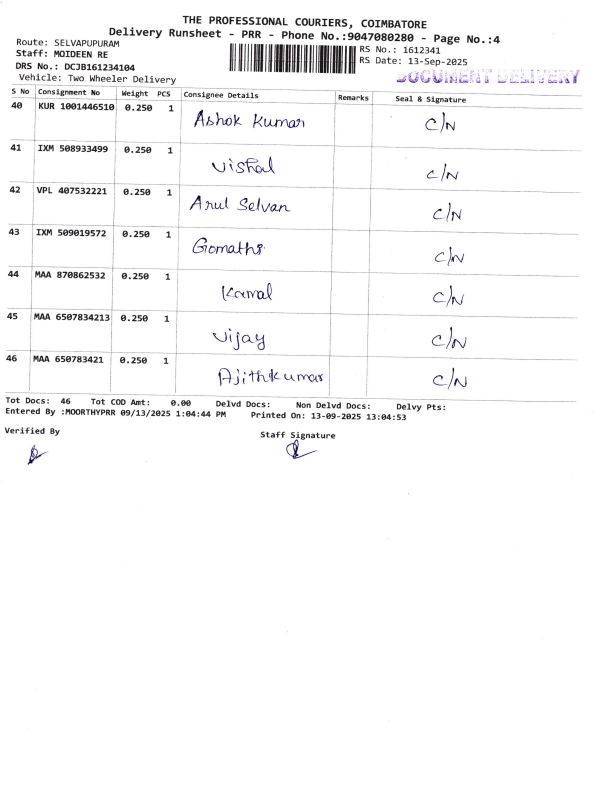 THE PROFESSIONAL COURIERS, COIMBATORE
Delivery Runsheet - PRR - Phone No.:9047080280 - Page No.:4
Route: SELVAPUPURAM
Staff: MOIDEEN RE
DRS No.: DCJB161234104
Vehicle: Two Wheeler Delivery
RS No.: 1612341
RS Date: 13-Sep-2025
DOCUMENT DELIVERY
S No Consignment No Weight PCS Consignee Details Remarks Seal & Signature
40 KUR 1001446510 0.250 1 Ashok Kumar C/N
41 IXM 508933499 0.250 1 Vishal C/N
42 VPL 407532221 0.250 1 Arul Selvan C/N
43 IXM 509019572 0.250 1 Gomathi C/N
44 MAA 870862532 0.250 1 Kamal C/N
45 MAA 6507834213 0.250 1 Vijay C/N
46 MAA 650783421 0.250 1 Ajithkumar C/N
Tot Docs: 46 Tot COD Amt: 0.00 Delvd Docs: Non Delvd Docs: Delvy Pts:
Entered By :MOORTHYPRR 09/13/2025 1:04:44 PM Printed On: 13-09-2025 13:04:53
Verified By
Staff Signature